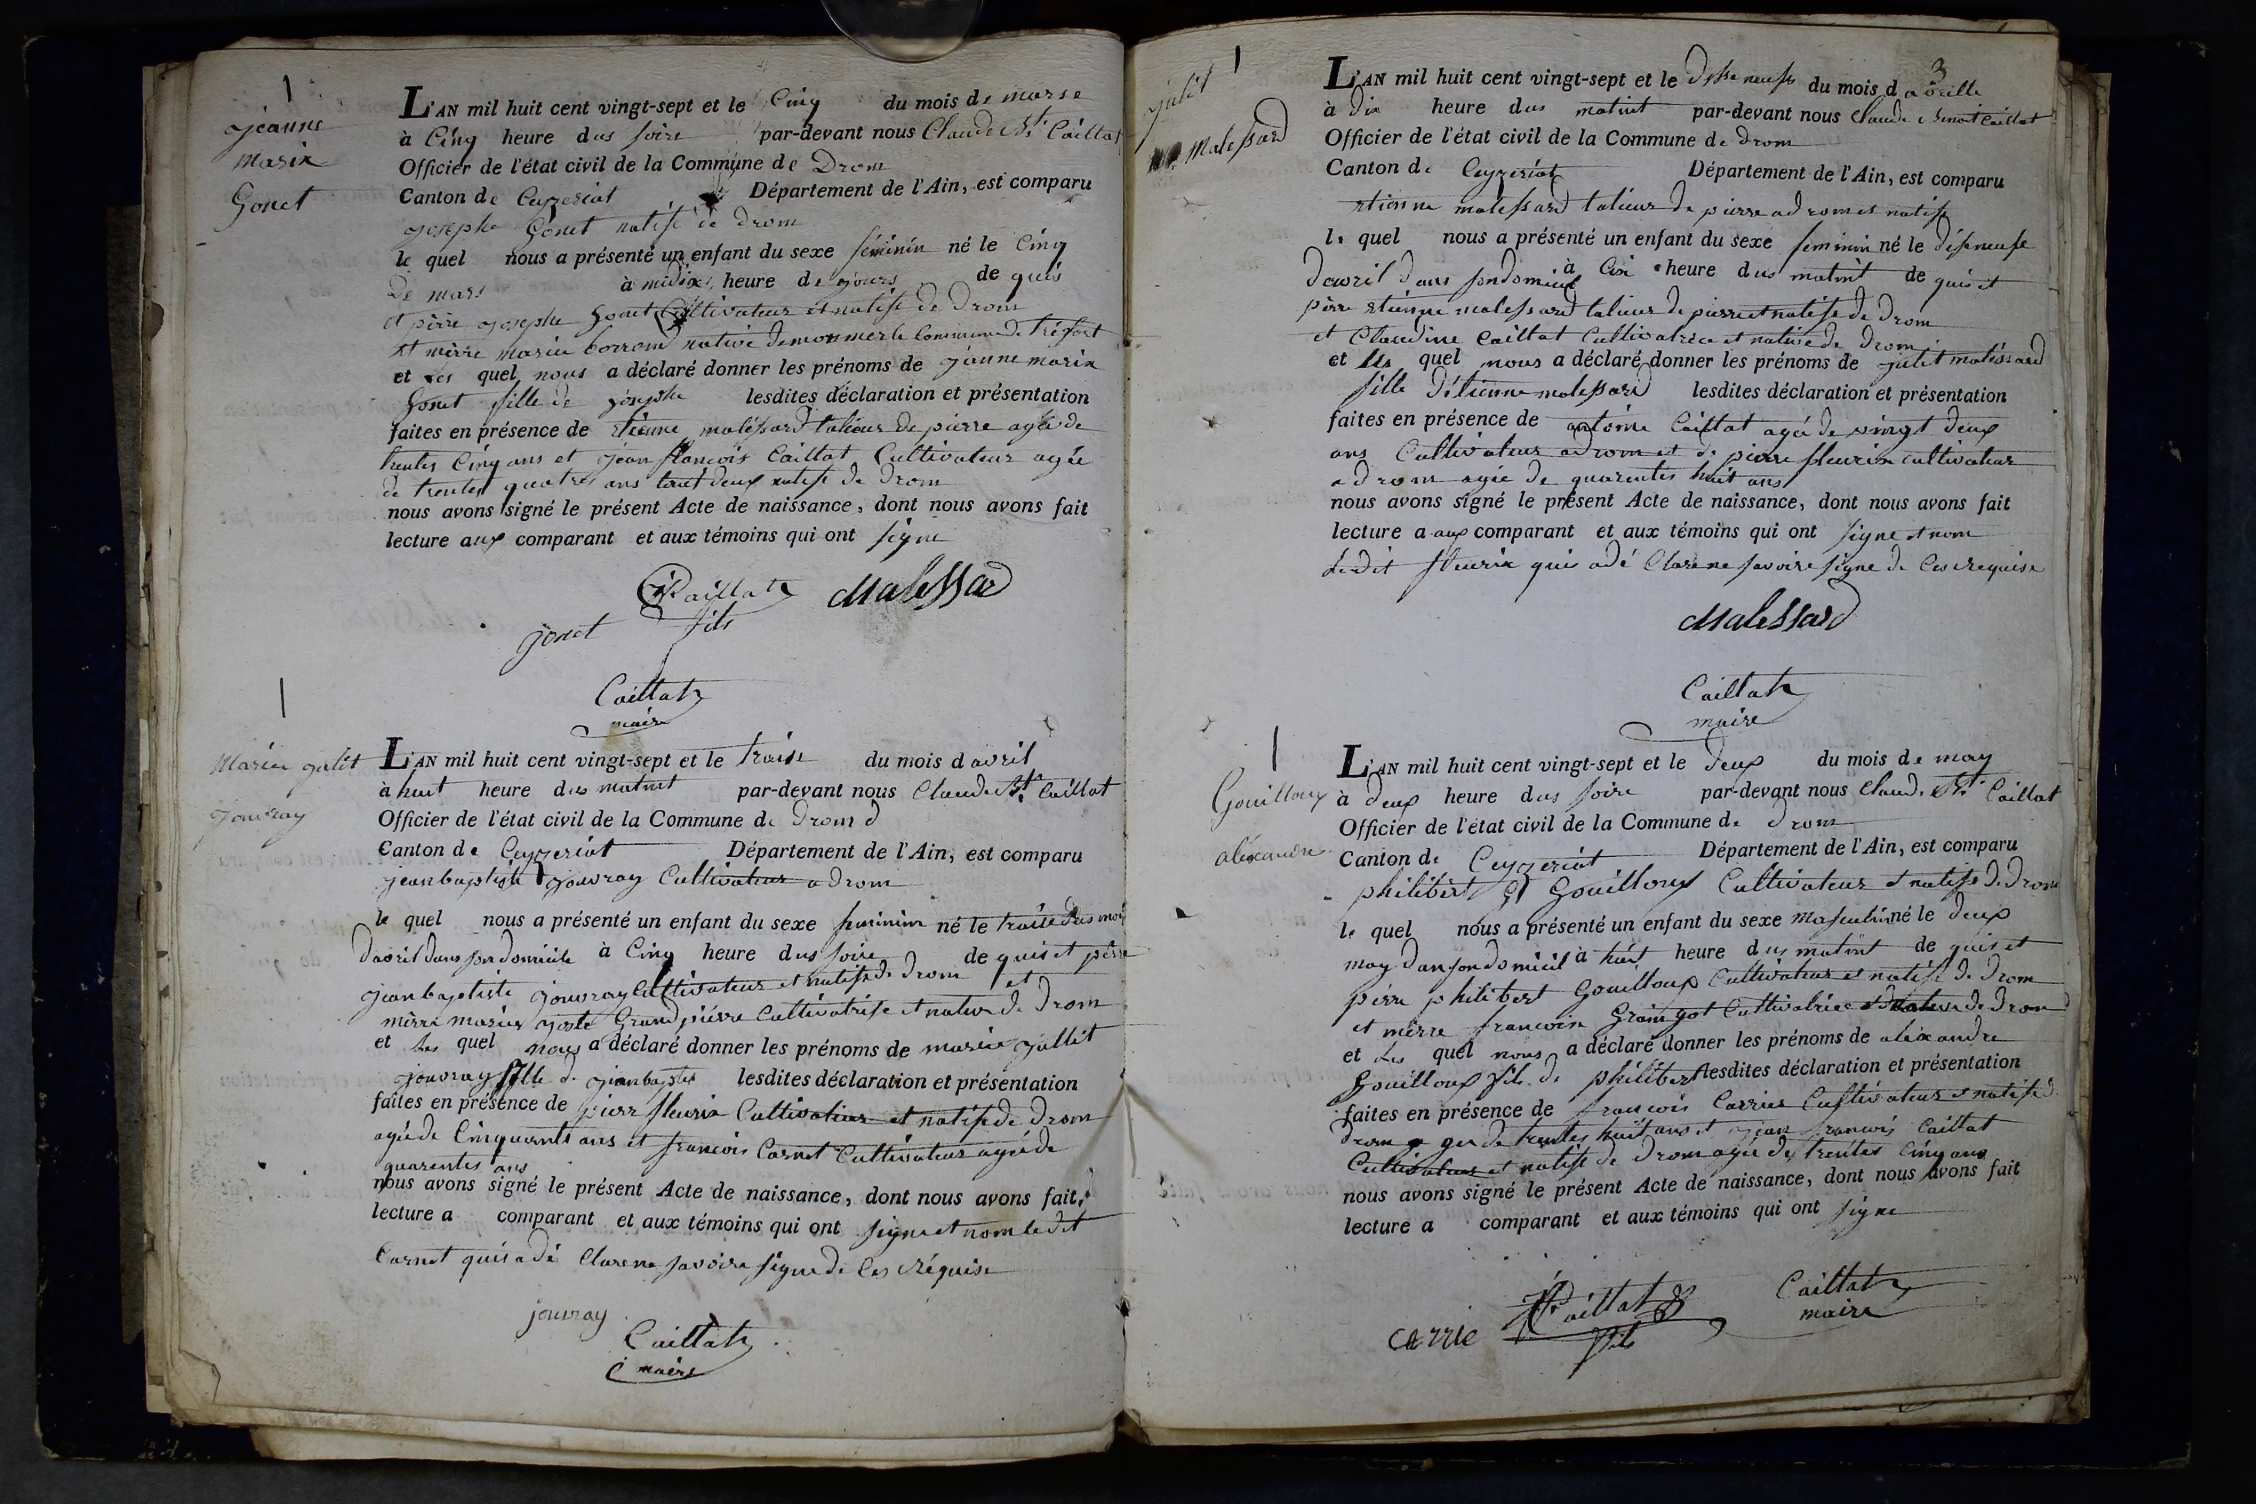 jeanne
marie
Gonet
L'AN mil huit cent vingt-sept et le Cinq du mois de marse
à Cinq heure dus soire par-devant nous Claude Bt Caillat
Officier de l'état civil de la Commune de Drom
Canton de Ceyzeriat Département de l'Ain, est comparu
josephe Gonet natife de Drom
le quel nous a présenté un enfant du sexe féminin né le Cinq
de mars à midix heure de jours de quis
et pirre josephe Gonet Cultivateur et natife de Drom
et mirre marie borron native de monmerle Commune de tréfort
et les quel nous a déclaré donner les prénoms de jéanne marie
Gonet fille de josephe lesdites déclaration et présentation
faites en présence de etienne malessard talieur de pierre agée de
trentes Cinq ans et jean françois Caillat Cultivateur agée
de trentes quatres ans tout deux natife de Drom
nous avons signé le présent Acte de naissance, dont nous avons fait
lecture aux comparant et aux témoins qui ont signe
Caillat Malessard
gonet fils
Caillat
maire
Mariee julit
jouvray
L'AN mil huit cent vingt-sept et le traise du mois d avril
à huit heure dus matint par-devant nous Claude Bt Caillat
Officier de l'état civil de la Commune de Drom
Canton de Ceyzeriat Département de l'Ain, est comparu
jean baptiste jouvray Cultivateur a drom
le quel nous a présenté un enfant du sexe feminin né le traise dus mois
davril dans son domicile à Cinq heure dus soire de quis et pérre
jean baptiste jouvray Cultivateur et natife de drom et
mérre mariee Grandpiérre Cultivatrise et native de Drom
et les quel nous a déclaré donner les prénoms de mariee jullit
jouvray fille de jean baptiste lesdites déclaration et présentation
faites en présence de pierr fleurie Cultivateur et natife de drom
agée de Cinquante ans et françois Carnet Cultivateur agée de
quarentes ans
nous avons signé le présent Acte de naissance, dont nous avons fait
lecture a comparant et aux témoins qui ont signe et nom ledit
Carnet quis a dé Clare ne savoire signe de Ces réquise
jouvray
Caillat
maire
3
julit
malessard
L'AN mil huit cent vingt-sept et le disse neufe du mois d avrille
à Dix heure dus matint par-devant nous Claude Benoit Caillat
Officier de l'état civil de la Commune de Drom
Canton de Ceyzeriat Département de l'Ain, est comparu
etienne malessard talieur de pierre a drom et natife
le quel nous a présenté un enfant du sexe feminin né le diseneufe
davril dans son domicil à Cix heure dus matint de quis et
pérre etienne malessard talieur de pierre et natife de Drom
et Claudine Caillat Cultivatrice et native de Drom
et les quel nous a déclaré donner les prénoms de julit malessard
fille d'étienne malessard lesdites déclaration et présentation
faites en présence de antoine Caillat agée de vingt deux
ans Cultivateur a drom et de pierre fleurie cultivateur
a drom agée de quarentes huit ans
nous avons signé le présent Acte de naissance, dont nous avons fait
lecture a aux comparant et aux témoins qui ont signe et nom
ledit fleurie quis a dé Clare ne savoire signe de Ces requise
Malessard
Caillat
maire
Gouilloux
aléxandre
L'AN mil huit cent vingt-sept et le deux du mois de may
à deux heure dus soire par-devant nous Claude Bt Caillat
Officier de l'état civil de la Commune de Drom
Canton de Ceyzeriat Département de l'Ain, est comparu
philibert Gouilloux Cultivateur et natife de Drom
le quel nous a présenté un enfant du sexe masculin né le deux
may dan son domicil à huit heure dus matint de quis et
pérre philibert Gouilloux Cultivateur et natife de Drom
et mérre francoise Cultivatrice et native de Drom
et les quel nous a déclaré donner les prénoms de aléxandre
Gouilloux fils de philibert lesdites déclaration et présentation
faites en présence de françois Carrier Cultivateur et natife d
drom agee de trentes huit ans et jean françois Caillat
Cultivateur et natife de Drom agée de trentes Cinq ans
nous avons signé le présent Acte de naissance, dont nous avons fait
lecture a comparant et aux témoins qui ont signe
Caillat Caillat
carrie fils maire